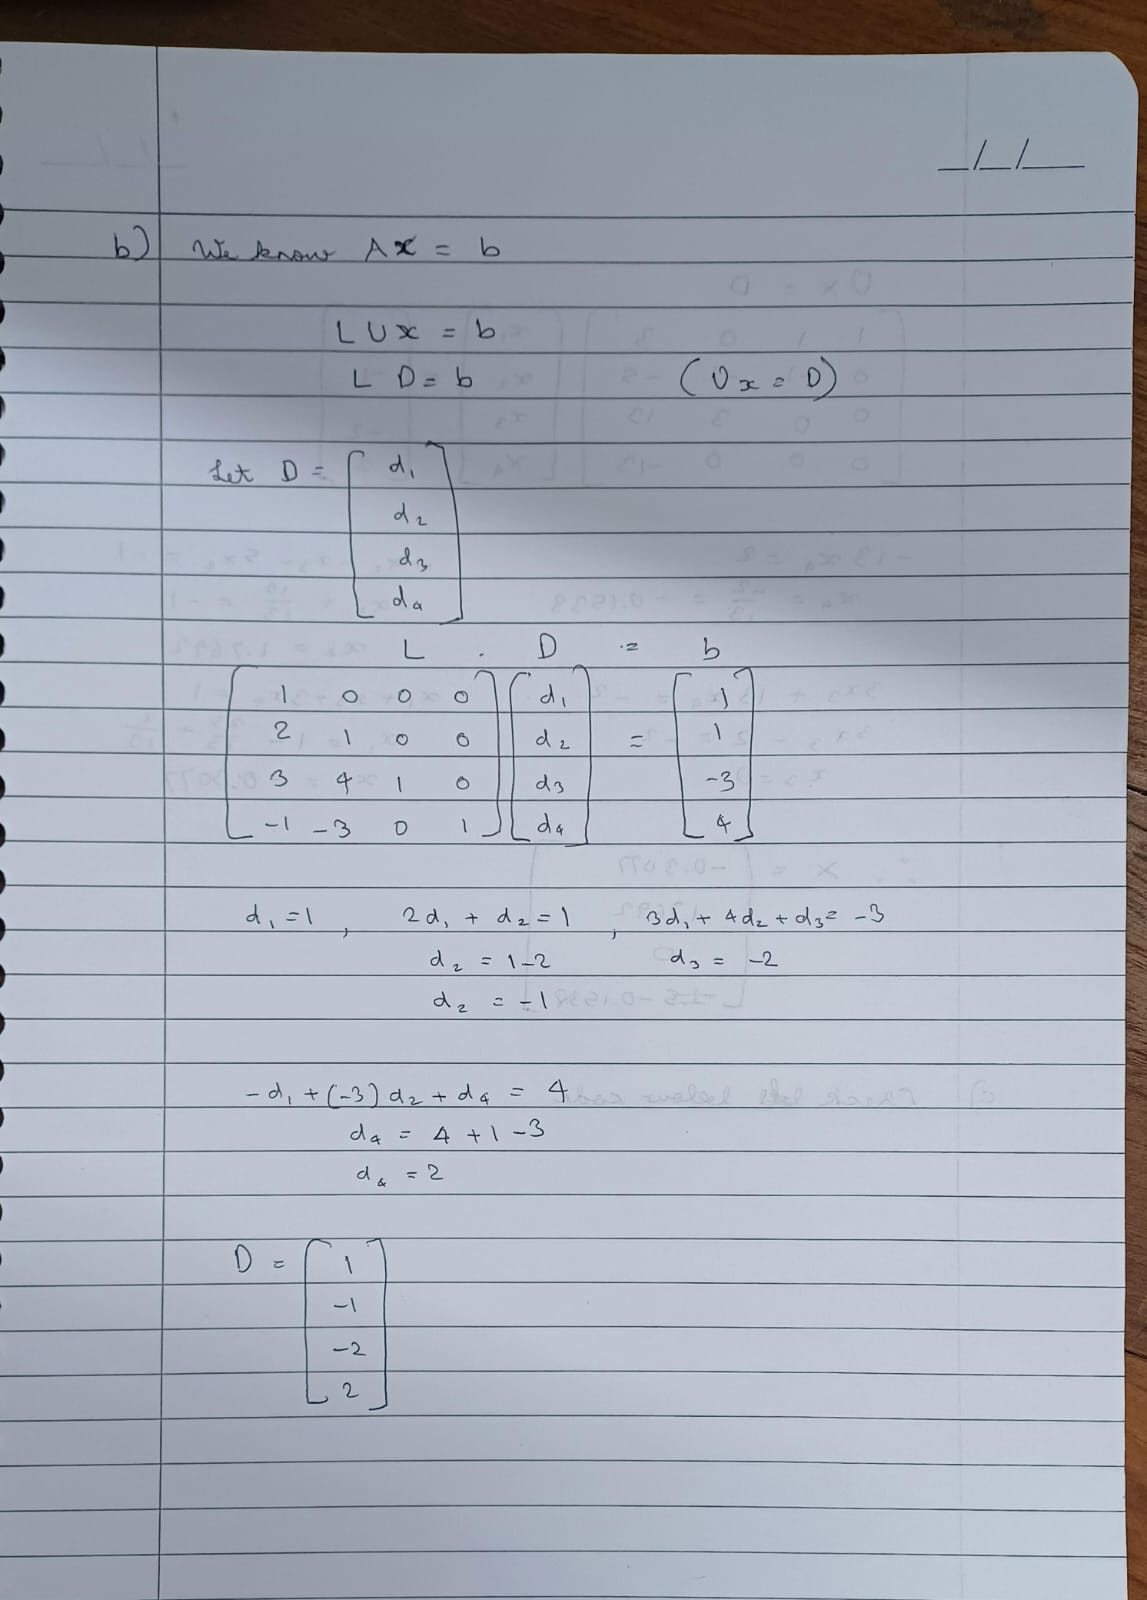 _/_/__
b) We know Ax = b
LUx = b
LD = b (Ux = D)
Let D = [d₁
d₂
d₃
d₄]
L . D = b
[1 0 0 0] [d₁] = [1]
[2 1 0 0] [d₂] = [1]
[3 4 1 0] [d₃] = [-3]
[-1 -3 0 1] [d₄] = [4]
d₁ = 1, 2d₁ + d₂ = 1, 3d₁ + 4d₂ + d₃ = -3
d₂ = 1-2 d₃ = -2
d₂ = -1
-d₁ + (-3) d₂ + d₄ = 4
d₄ = 4 + 1 - 3
d₄ = 2
D = [1
-1
-2
2]